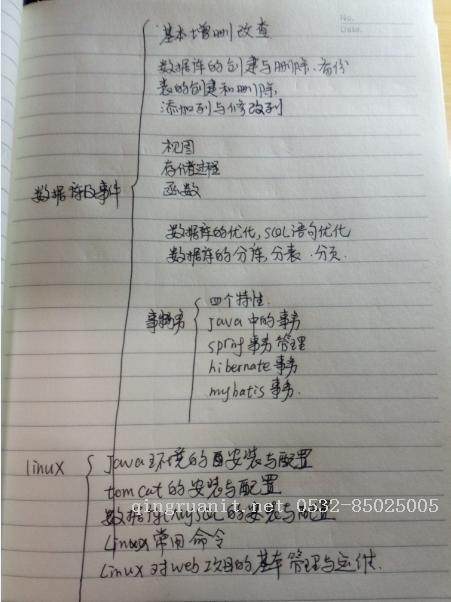 No.
Date.
基本增删改查
数据库的创建与删除、备份
表的创建和删除,
添加列与修改列
视图
存储过程
函数
数据库及事件
数据库的优化,SQL语句优化
数据库的分库,分表.分页.
四个特性.
事务
java中的事务
spring事务管理
hibernate事务
mybatis事务.
linux
Java环境的安装与配置
tomcat的安装与配置
数据库mysql的安装与配置
qingruanit.net 0532-85025005
Linux常用命令
Linux对web项目的基本管理与运维.